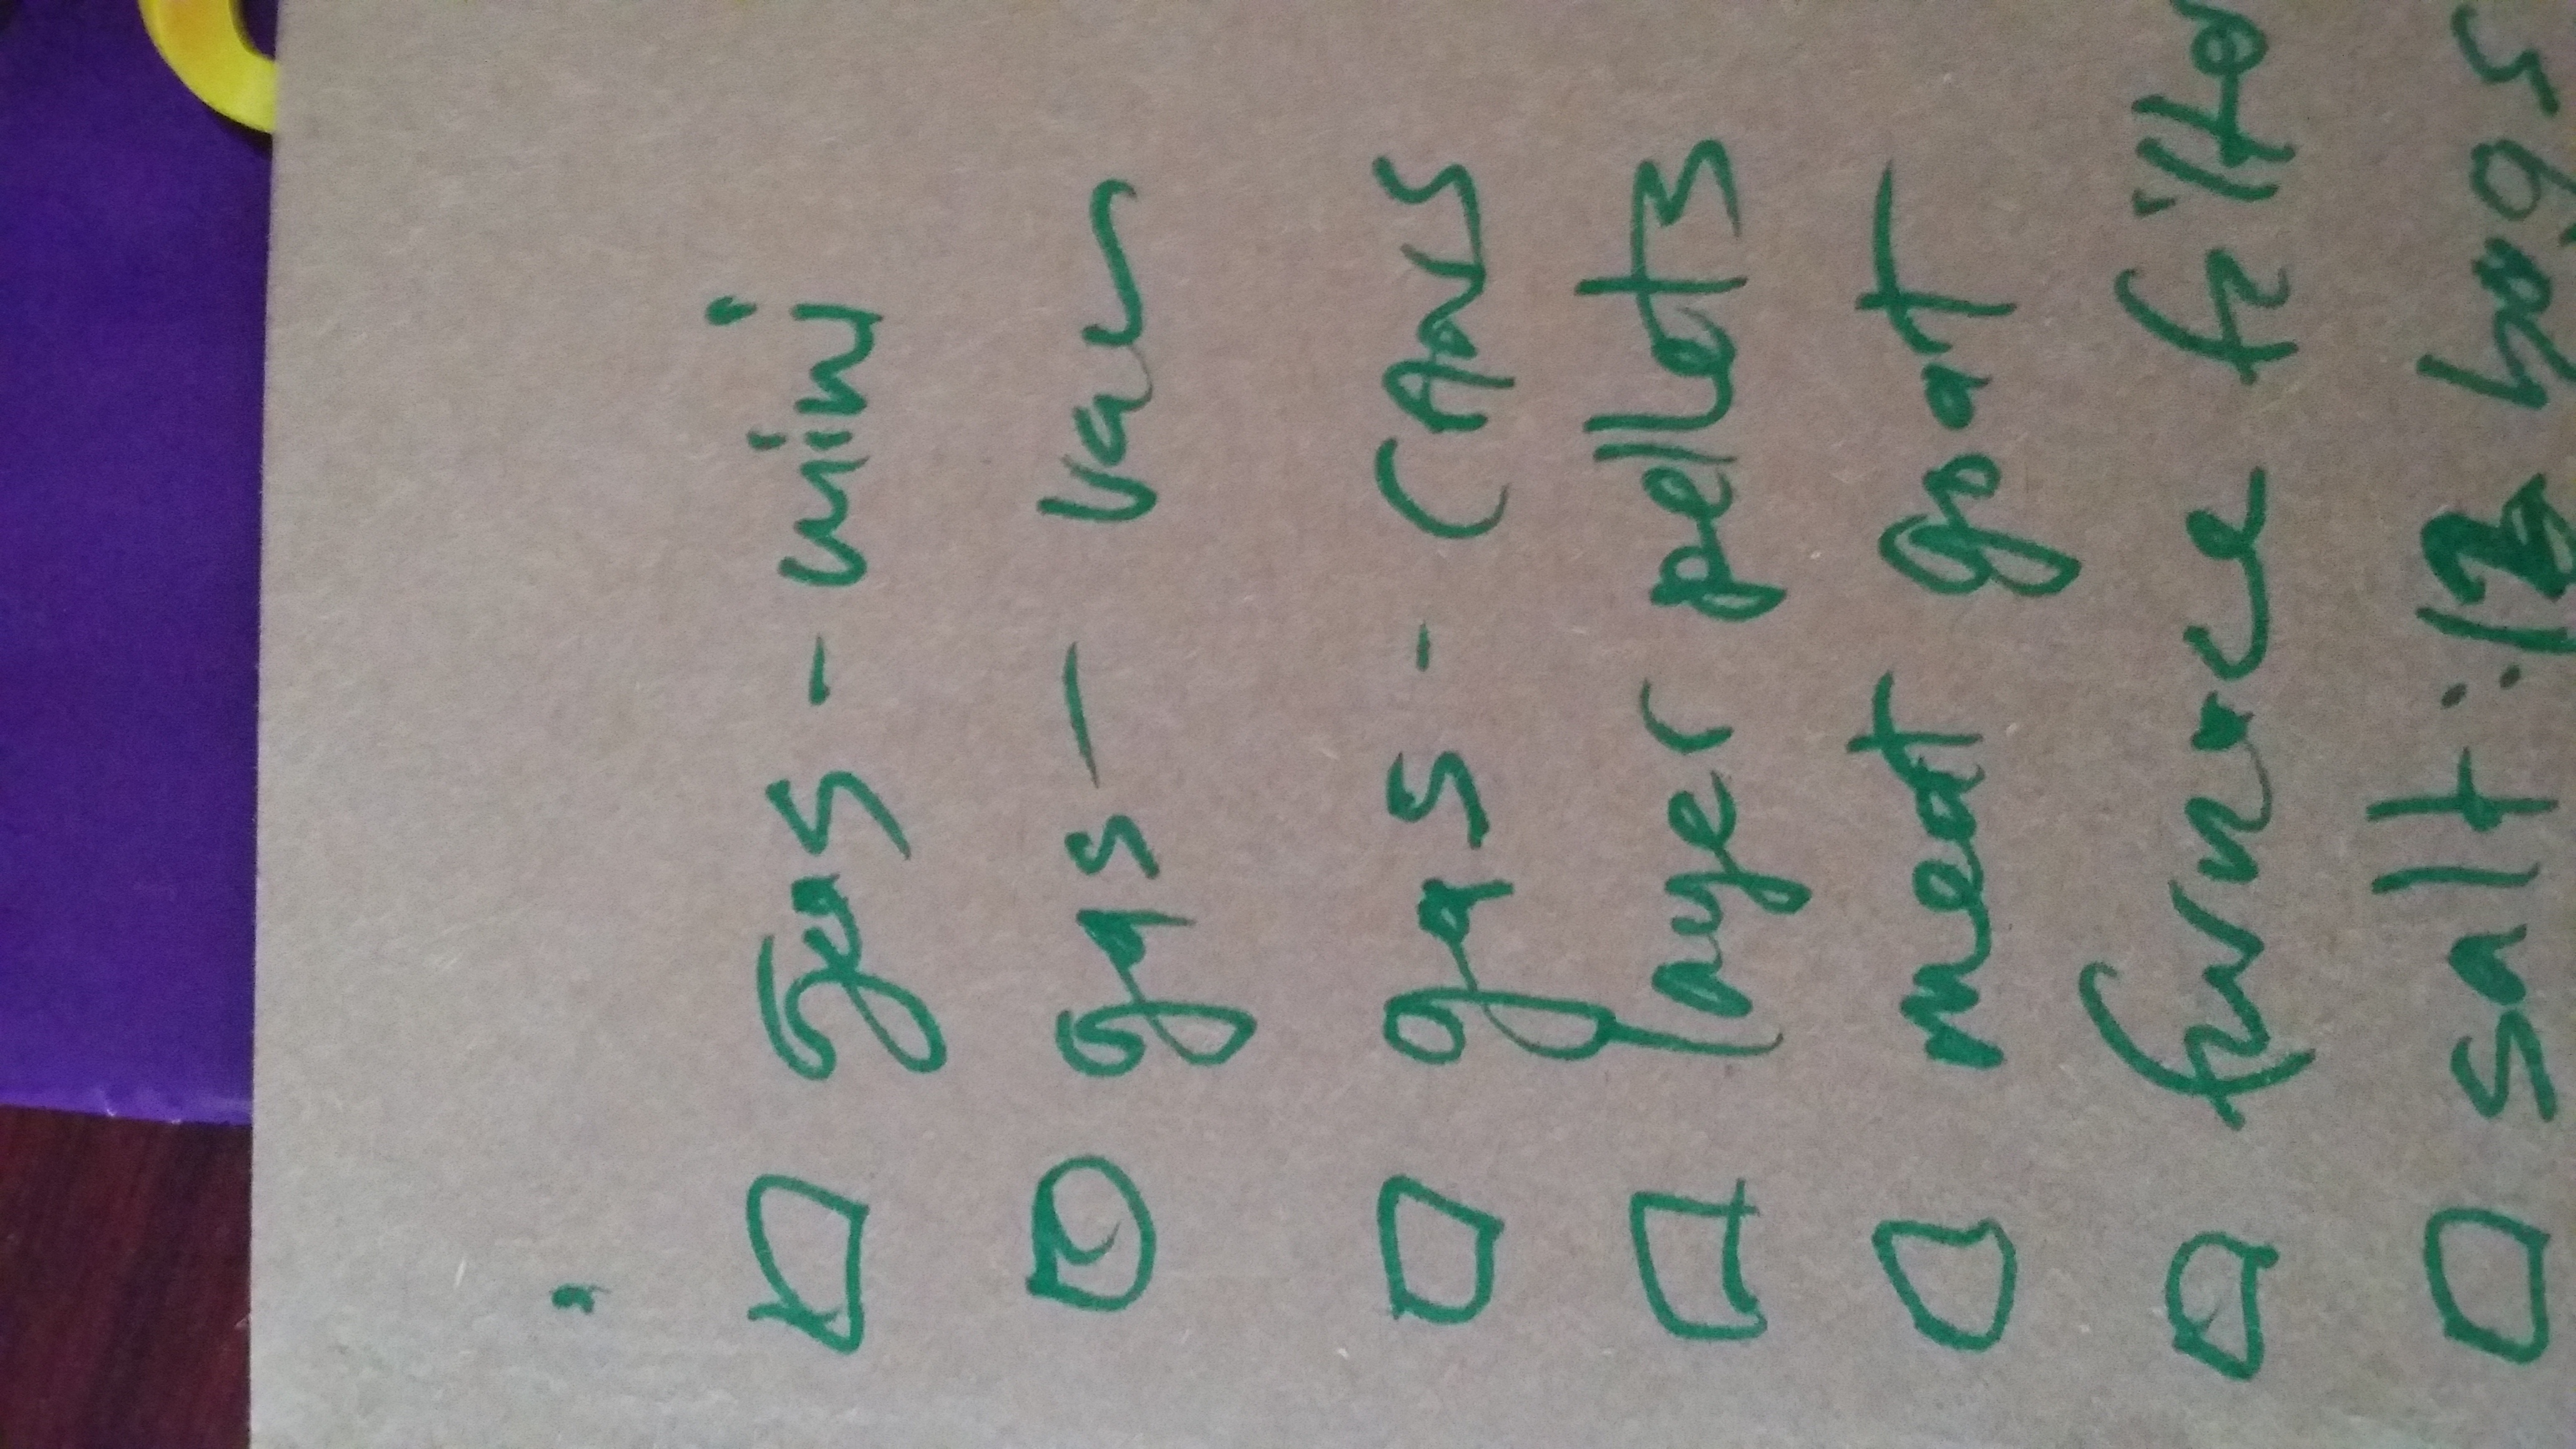 gas - mini
gas - van
gas - CANS
layer pellets
meat goat
furnace filte
salt: 12 bags